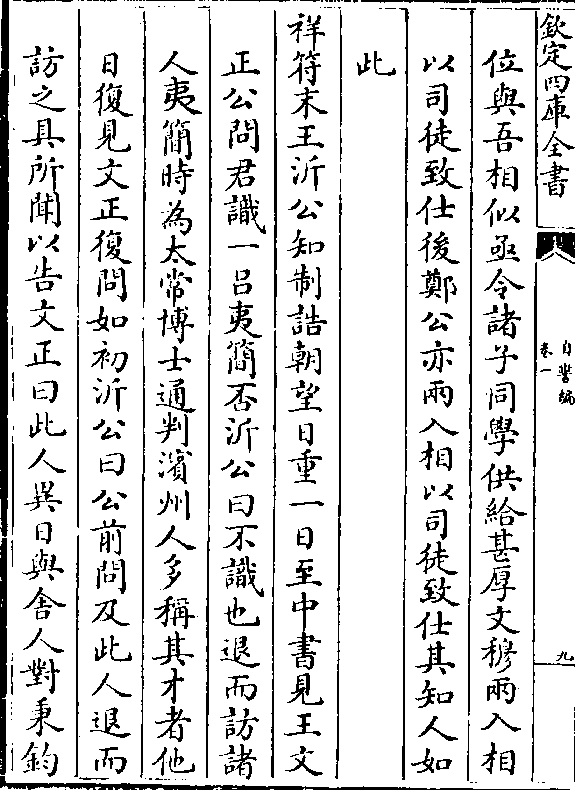 欽定四庫全書
自警編
卷一
九
位與吾相似亟令諸子同學供給甚厚文穆兩入相
以司徒致仕後鄭公亦兩入相以司徒致仕其知人如
此
祥符末王沂公知制誥朝望日重一日至中書見王文
正公問君識一吕夷簡否沂公曰不識也退而訪諸
人夷簡時為太常博士通判濱州人多稱其才者他
日復見文正復問如初沂公曰公前問及此人退而
訪之具所聞以告文正曰此人異日與舍人對秉鈞